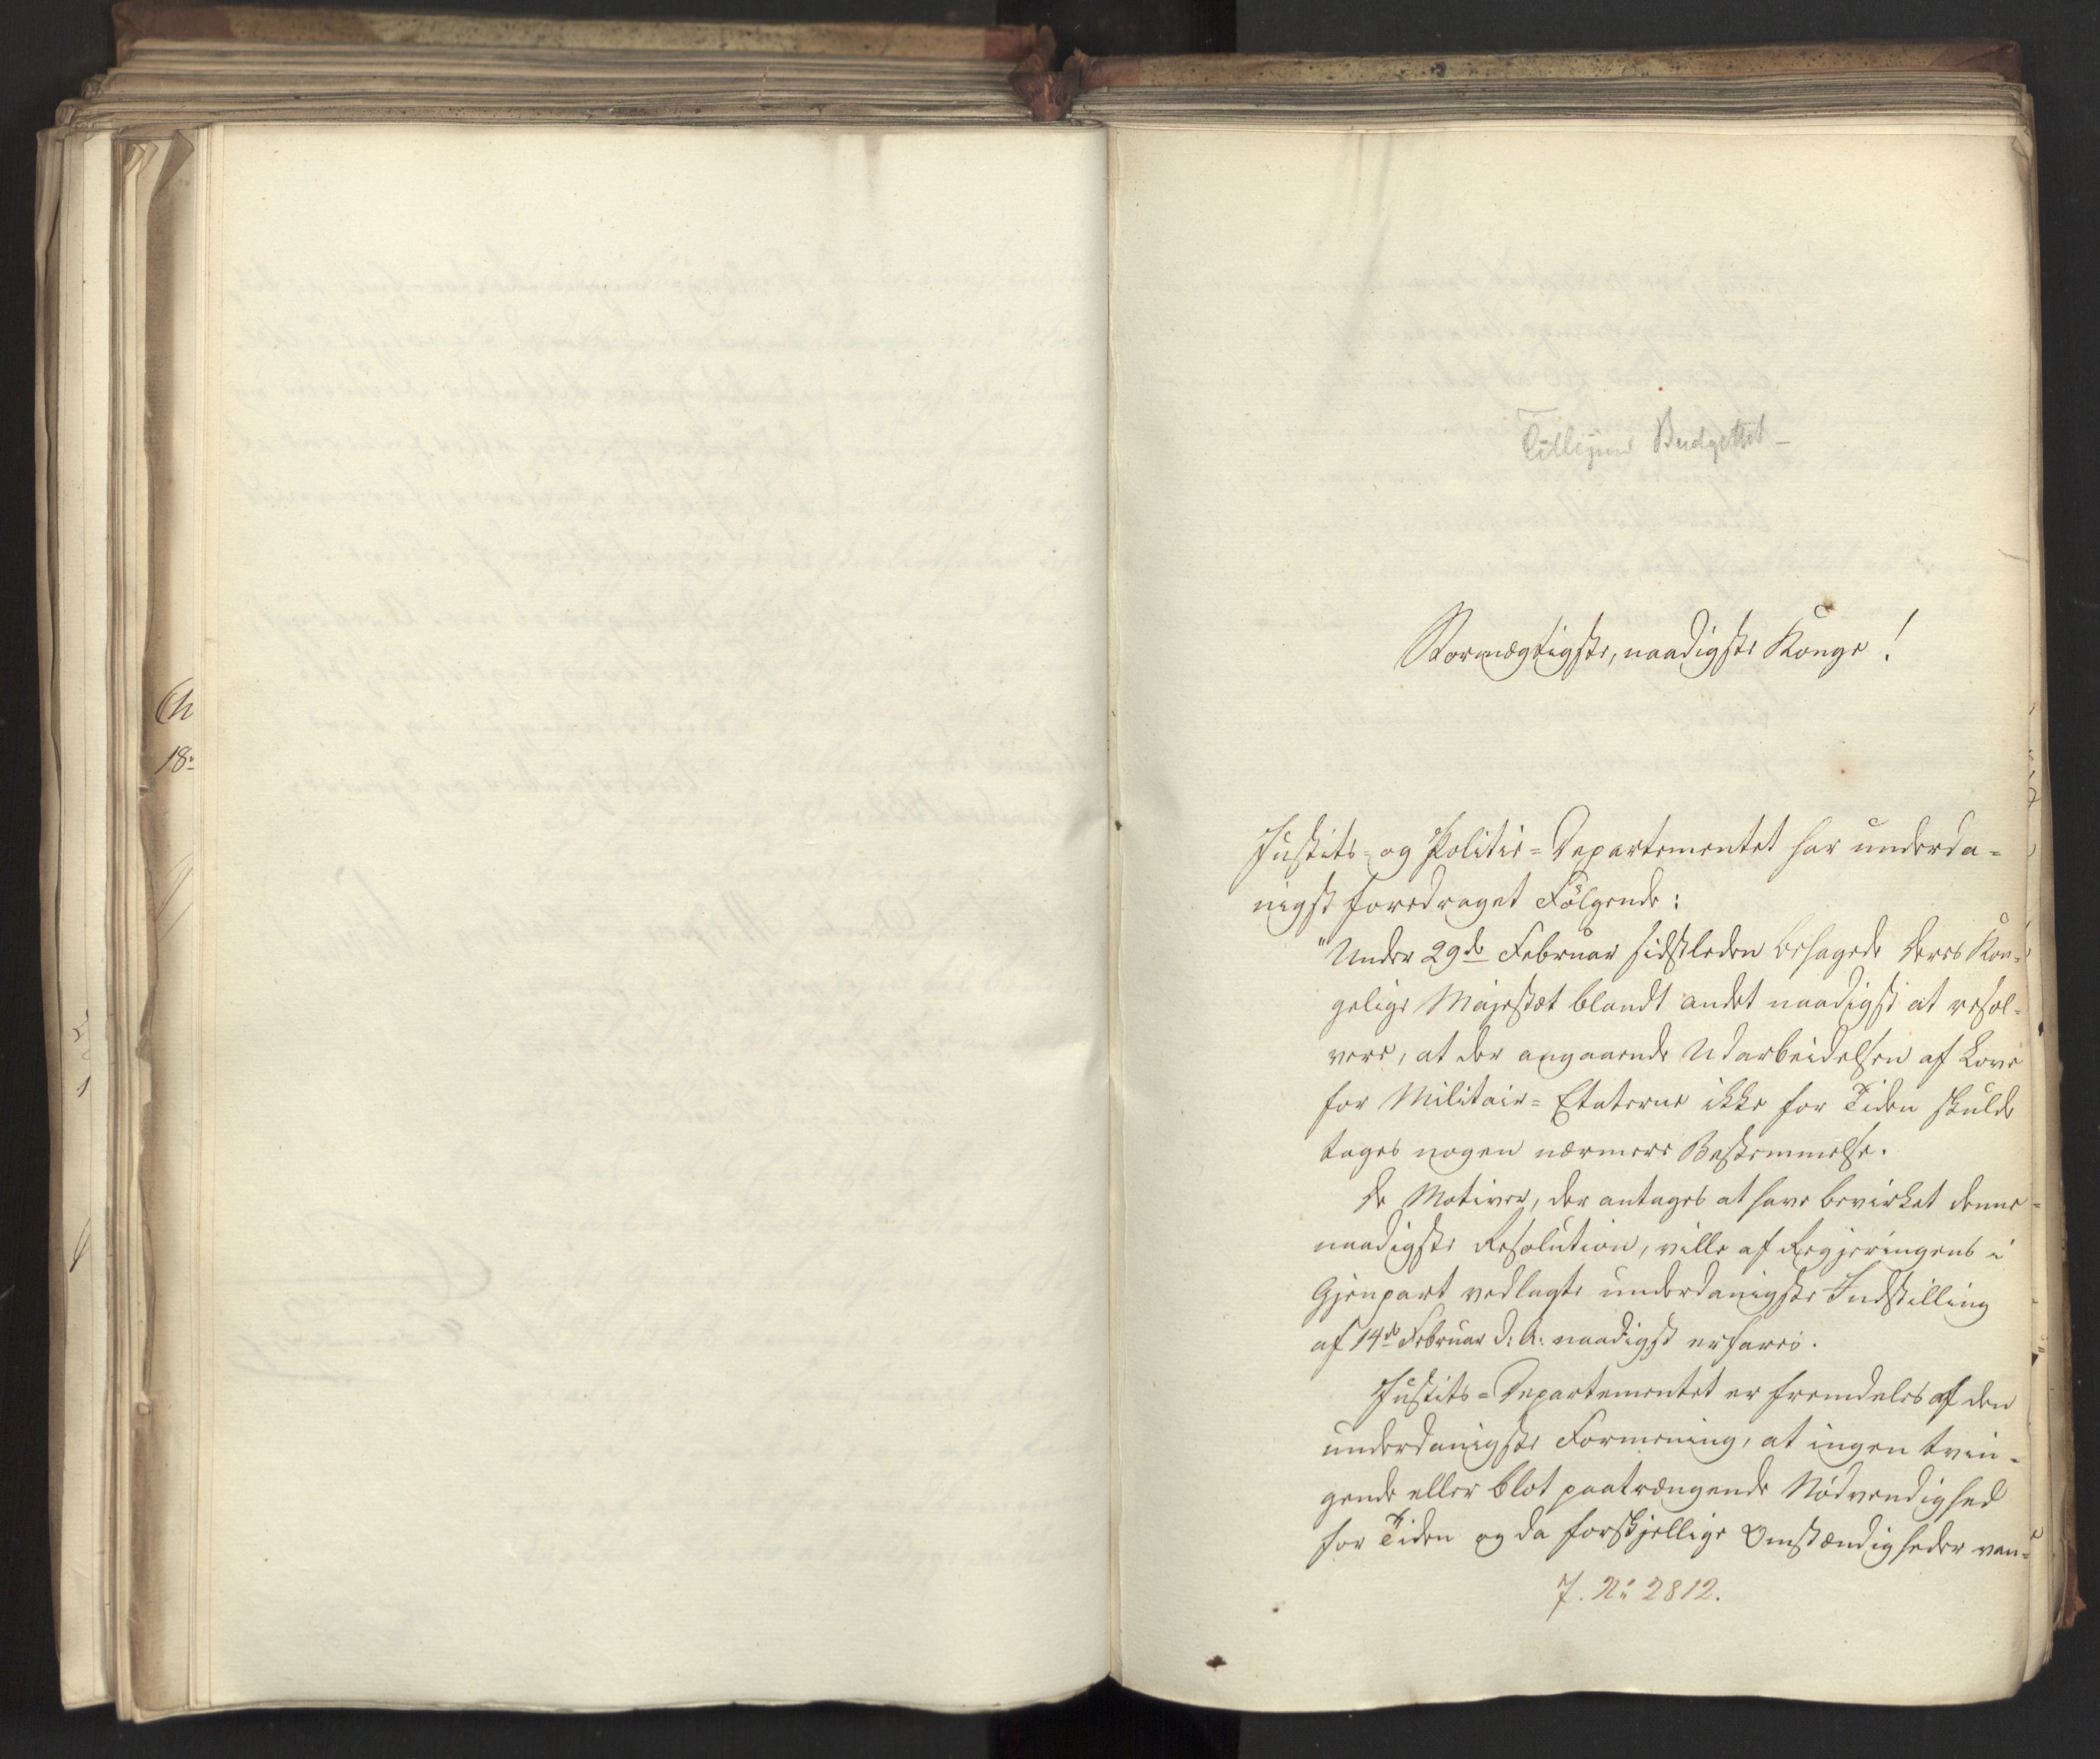 Budgettet
Stormægtigste, naadigste Konge!
Justits- og Politie-Departementet har underda-
nigst foredraget Følgende:
"Under 29de Februar sidstleden behagede Deres Kon-
gelige Majestæt blandt andet naadigst at resol-
vere, at der angaaende Udarbeidelsen af Love
for Militair-Etaterne ikke for Tiden skulde
tages nogen nærmere Bestemmelse.
De Motiver, der antages at have bevirket denne
naadigste Resolution, ville af Regjeringens i
Gjenpart vedlagte underdanigste Indstilling
af 14de Februar d. A. naadigst erfares.
Justits-Departementet er fremdeles af den
underdanigste Formening, at ingen tvin-
gende eller blot paatrængende Nödvendighed
for Tiden og da forskjellige Omstændigheder van-
J. No 2812.
Ch
18